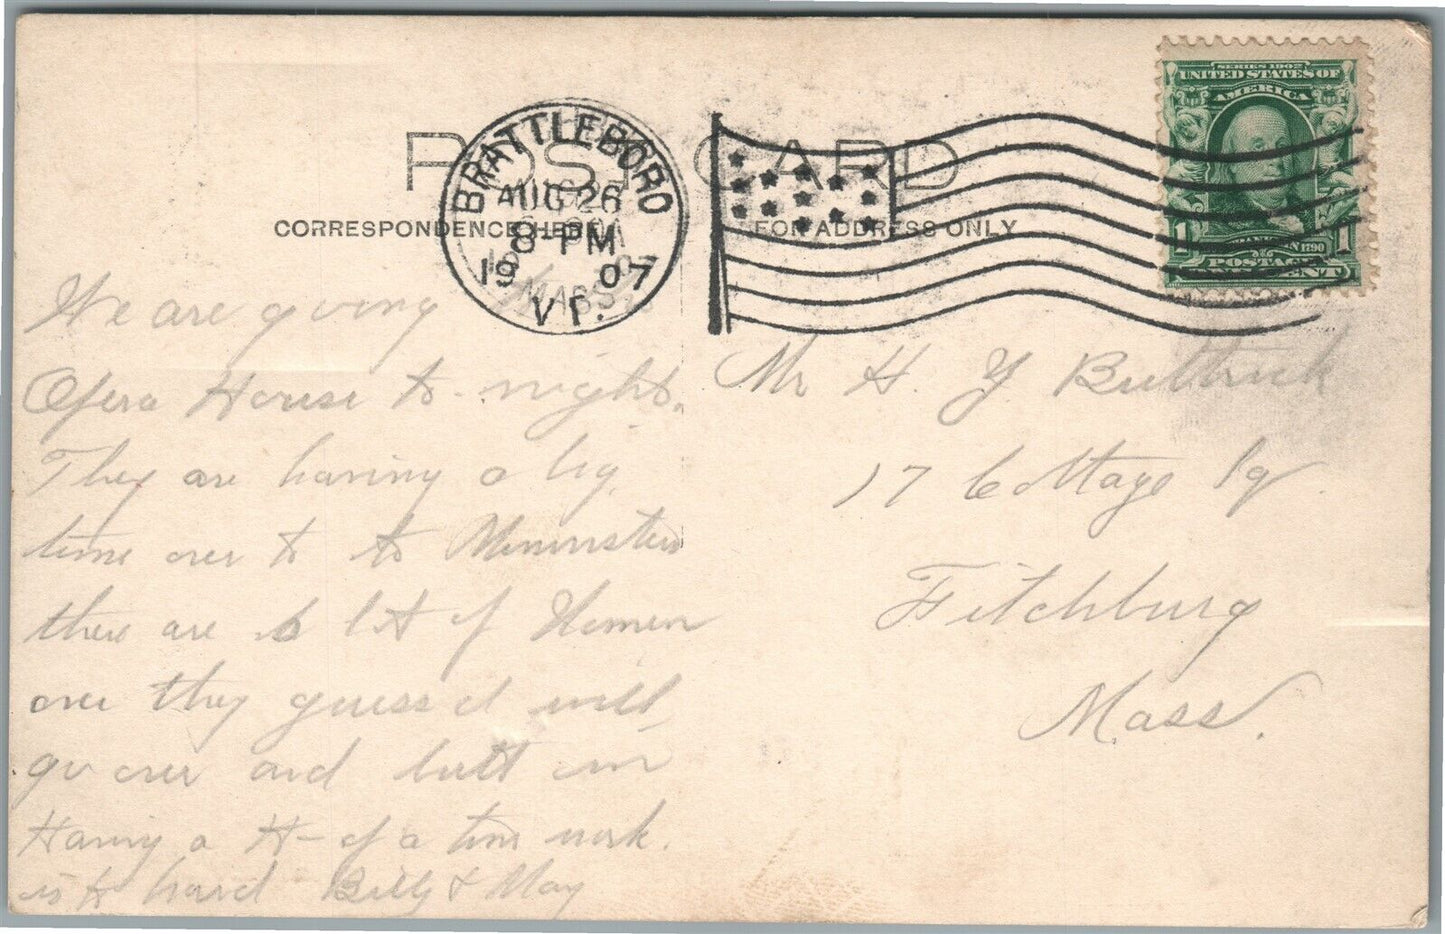 POST CARD
CORRESPONDENCE HERE
FOR ADDRESS ONLY
BRATTLEBORO
AUG 26
8 - PM
1907
VT.
MASS
SERIES 1902
UNITED STATES OF
AMERICA
FRANKLIN 1790
POSTAGE
1 ONE CENT 1
We are going
Opera House to-night.
They are having a big
time over to to
there are a lot of Women
over they guess it will
go over and butt in
Having a H- of a time work.
is to hard Billy & May
Mr H. Y. Buttrick
17 Cottage Sq.
Fitchburg
Mass.